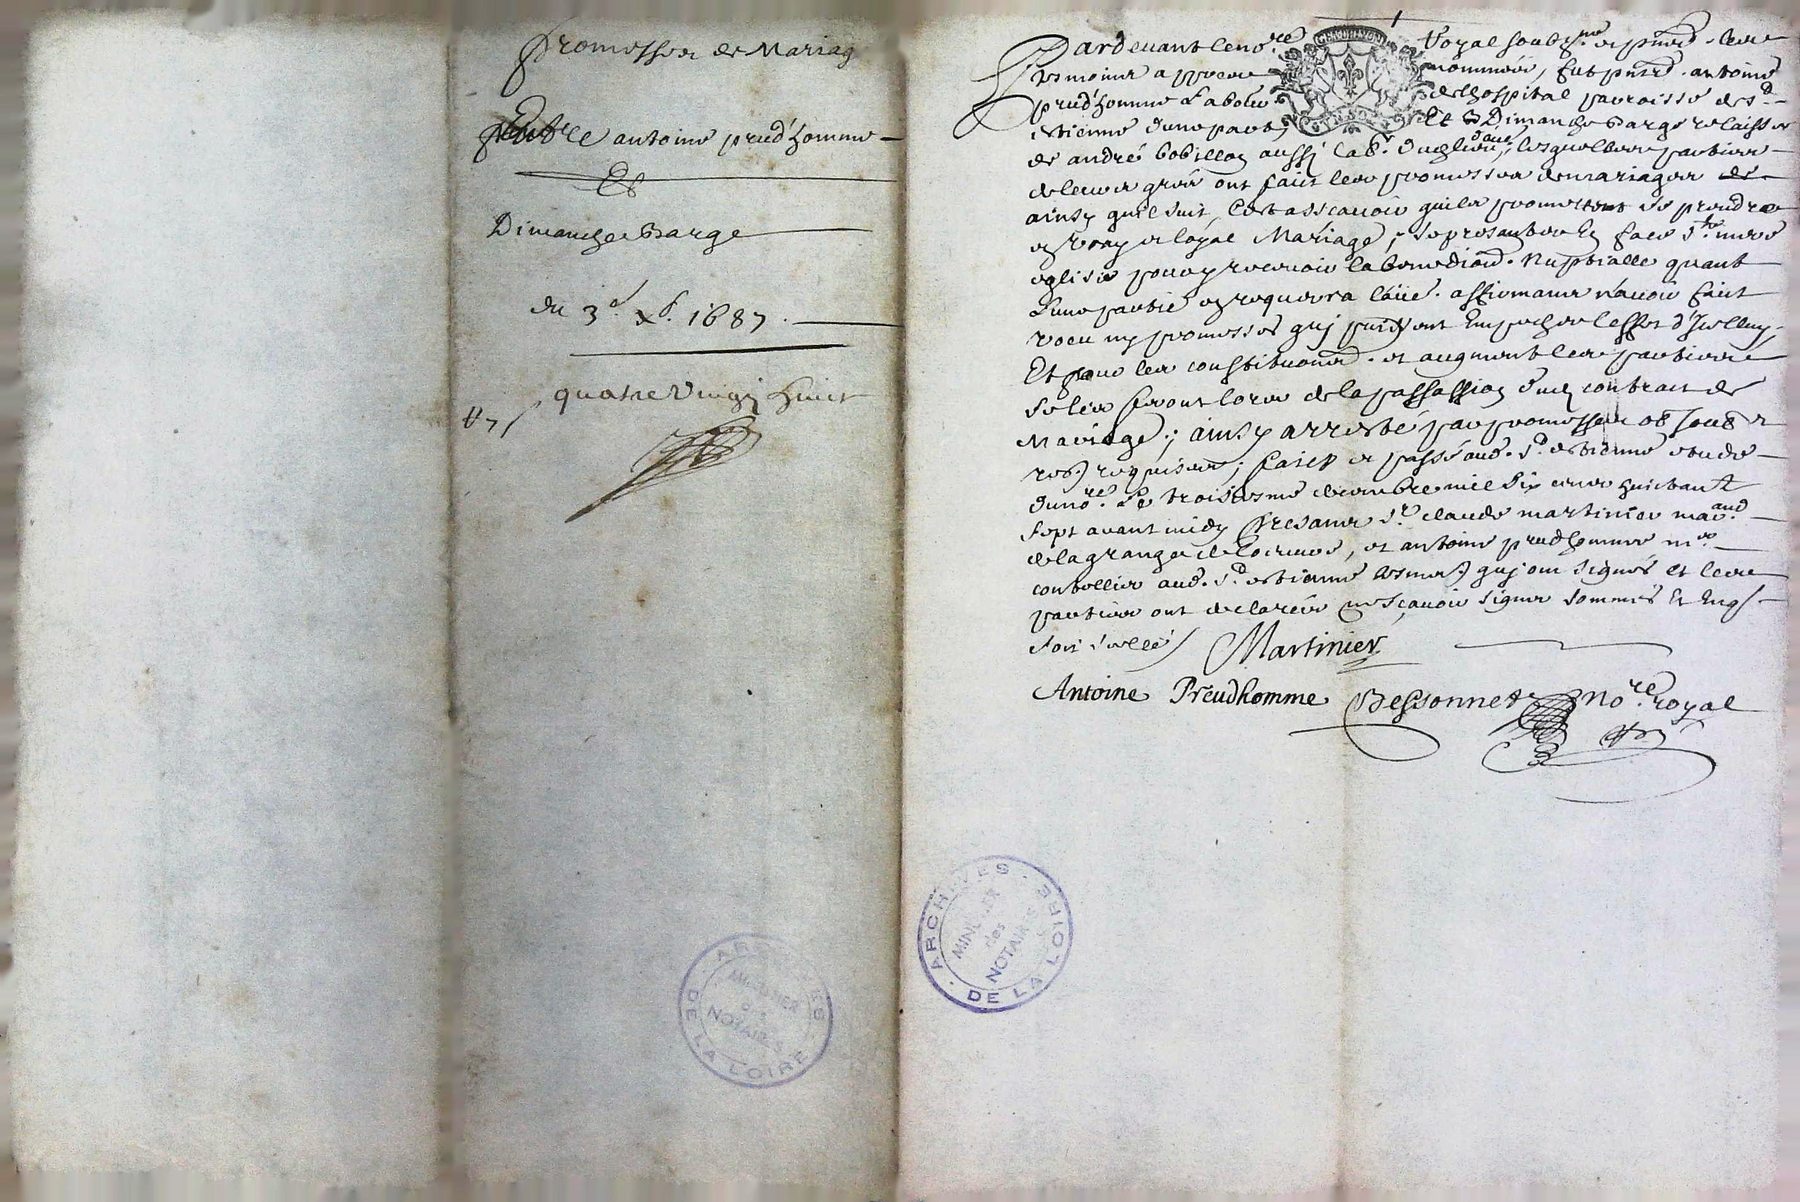 promesses de Mariag
Entre antoine prud'homme
Et
Dimanche Barge
du 3e. xbr. 1687.
quatre vingt huict
Pardevant le nore Royal soubzné et présents les
tesmoins appres nommés, fut présent antoine
prud'homme Labour de Lhospital parroisse de St
estienne d'une part, Et Dimanche Barge relaissée
de andré bobillon aussi lab. d'autre, lesquelles parties
de leurs grés ont faict les promesses de mariages
ainsy quil suit, C'est asscavoir quils promettent se prendre
en vray et loyal Mariage, se presanter En face Ste. mere
eglise pour y recevoir la benediction Nuptialle quant
l'une partie en requerra l'aue. affirmants n'avoir faict
voeu ny promesses quj puissent Empecher l'effet d'Jcelluy,
Et pour les constitutions et augments les parties
se les feront lors de la passassion du contract de
Mariage; ainsy arresté par promesses
requises; faict et passé aud. St. estienne estude
dud. nore. Le troisiesme decembre mil six cens huictante
sept avant midy Presants Sr. claude martinier marand
de la grange de, et antoine prudhomme me.
cordellier aud. St. estienne tesmoins quj ont signés et les
parties ont declarées ne sçavoir signer sommés Et Enq
soit scellé
Martinier
Antoine Preudhomme Bessonnet Nore. royal
ARCHIVES DE LA LOIRE
MINUTIER
des
NOTAIRES
ARCHIVES DE LA LOIRE
MINUTIER
des
NOTAIRES